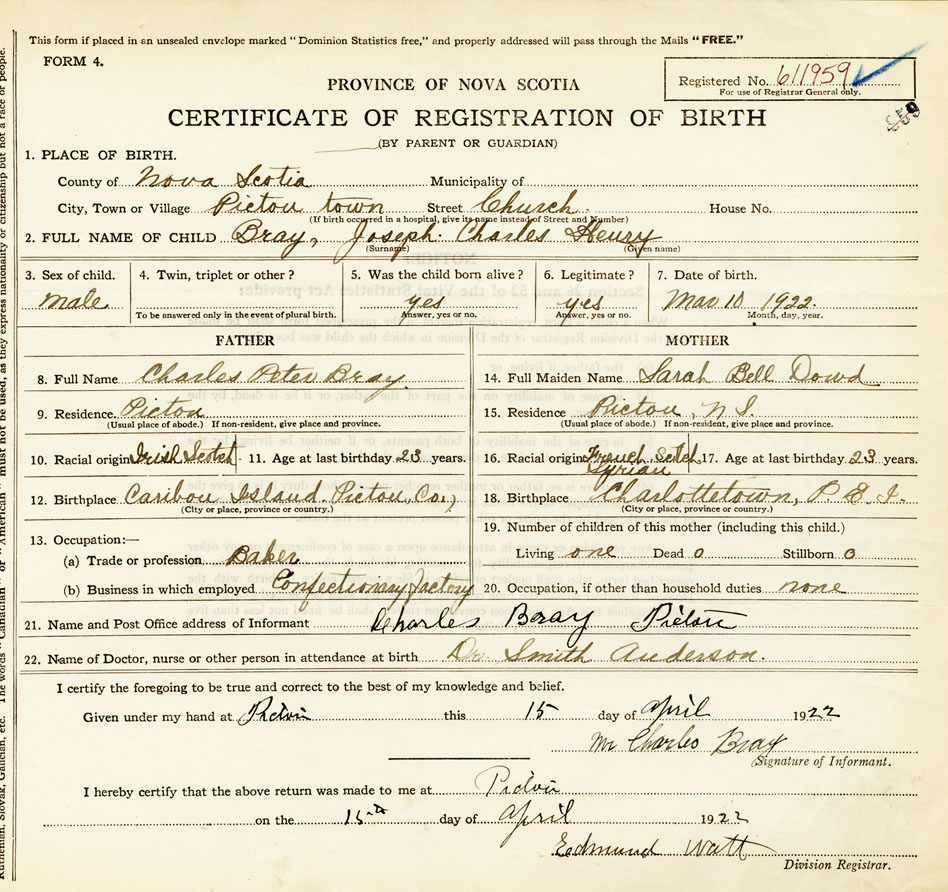 This form if placed in an unsealed envelope marked "Dominion Statistics free," and properly addressed will pass through the Mails "FREE."
FORM 4.
Registered No. 611959
For use of Registrar General only.
PROVINCE OF NOVA SCOTIA
CERTIFICATE OF REGISTRATION OF BIRTH
(BY PARENT OR GUARDIAN)
1. PLACE OF BIRTH.
County of Nova Scotia Municipality of
City, Town or Village Pictou town Street Church House No.
(If birth occurred in a hospital, give its name instead of Street and Number)
2. FULL NAME OF CHILD Bray, Joseph Charles Henry
(Surname) (Given name)
3. Sex of child. 4. Twin, triplet or other? 5. Was the child born alive? 6. Legitimate? 7. Date of birth.
male yes yes Mar 10 1922.
To be answered only in the event of plural birth. Answer, yes or no. Answer, yes or no. Month, day, year.
FATHER MOTHER
8. Full Name Charles Peter Bray. 14. Full Maiden Name Sarah Bell Dowd
9. Residence. Pictou 15. Residence Pictou, N S.
(Usual place of abode.) If non-resident, give place and province. (Usual place of abode.) If non-resident, give place and province.
10. Racial origin Irish Scotch 11. Age at last birthday 23 years. 16. Racial origin French Scotch Syrian 17. Age at last birthday 23 years.
12. Birthplace Caribou Island Pictou, Co., 18. Birthplace Charlottetown, P. E. I.
(City or place, province or country.) (City or place, province or country.)
13. Occupation:— 19. Number of children of this mother (including this child.)
(a) Trade or profession Baker Living one Dead 0 Stillborn 0
(b) Business in which employed Confectionary factory 20. Occupation, if other than household duties none
21. Name and Post Office address of Informant Charles Bray Pictou
22. Name of Doctor, nurse or other person in attendance at birth Dr Smith Anderson.
I certify the foregoing to be true and correct to the best of my knowledge and belief.
Given under my hand at Pictou this 15 day of April 1922
Mr Charles Bray
Signature of Informant.
I hereby certify that the above return was made to me at Pictou
on the 15th day of April 1922
Edmund Watt
Division Registrar.
Ruthenian, Slovak, Galician, etc. The words "Canadian" or "American" must not be used, as they express nationality or citizenship but not a race or people.